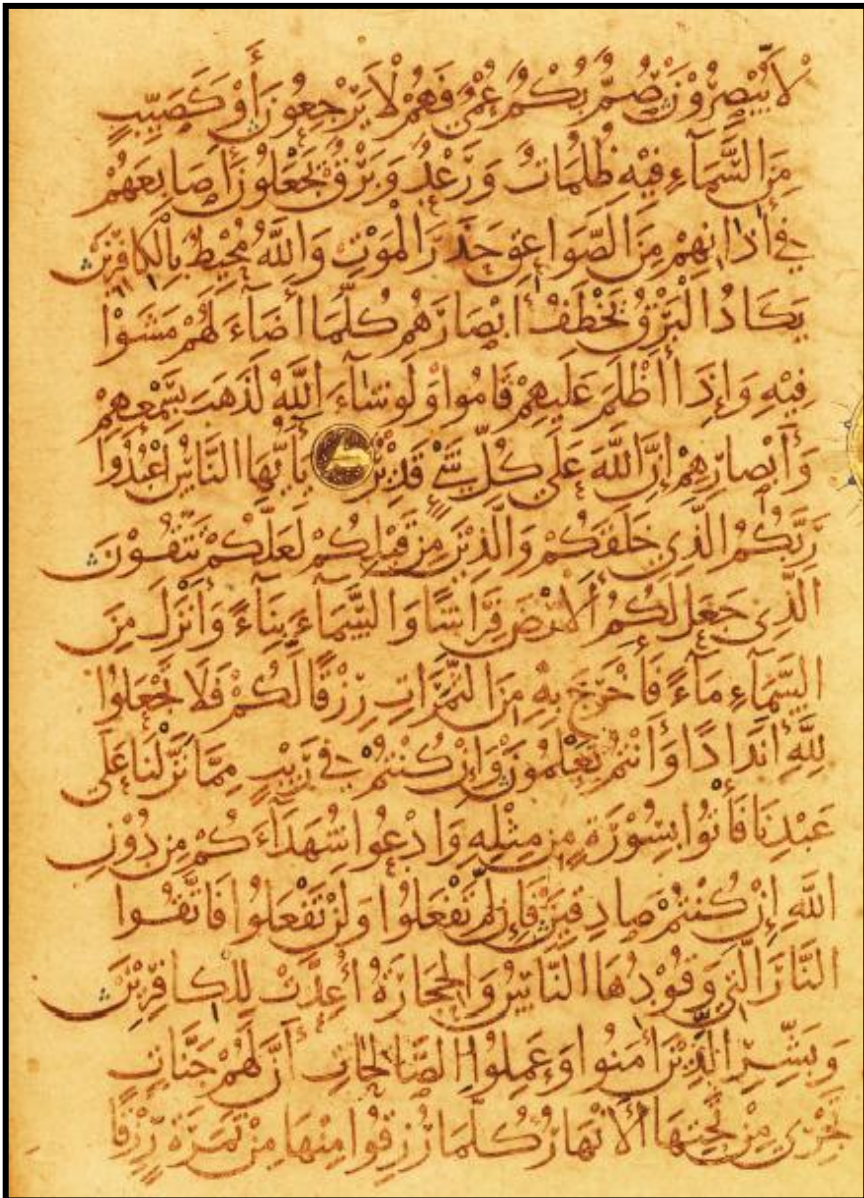 لَا يُبْصِرُوْنَ صُمٌّ بُكْمٌ عُمْيٌ فَهُمْ لَا يَرْجِعُوْنَ أَوْ كَصَيِّبٍ
مِنَ السَّمَآءِ فِيْهِ ظُلُمَاتٌ وَرَعْدٌ وَبَرْقٌ يَجْعَلُوْنَ أَصَابِعَهُمْ
فِي أٰذَانِهِمْ مِنَ الصَّوَاعِقِ حَذَرَ الْمَوْتِ وَاللَّهُ مُحِيْطٌ بِالْكَافِرِيْنَ
يَكَادُ الْبَرْقُ يَخْطَفُ أَبْصَارَهُمْ كُلَّمَا أَضَآءَ لَهُمْ مَشَوْا
فِيْهِ وَإِذَا أَظْلَمَ عَلَيْهِمْ قَامُوا وَلَوْ شَآءَ اللَّهُ لَذَهَبَ بِسَمْعِهِمْ
وَأَبْصَارِهِمْ إِنَّ اللَّهَ عَلَى كُلِّ شَيْءٍ قَدِيْرٌ يَأَيُّهَا النَّاسُ اعْبُدُوْا
رَبَّكُمُ الَّذِي خَلَقَكُمْ وَالَّذِيْنَ مِنْ قَبْلِكُمْ لَعَلَّكُمْ تَتَّقُوْنَ
الَّذِي جَعَلَ لَكُمُ الْأَرْضَ فِرَاشًا وَالسَّمَآءَ بِنَآءً وَأَنْزَلَ مِنَ
السَّمَآءِ مَآءً فَأَخْرَجَ بِهِ مِنَ الثَّمَرَاتِ رِزْقًا لَّكُمْ فَلَا تَجْعَلُوْا
لِلَّهِ أَنْدَادًا وَأَنْتُمْ تَعْلَمُوْنَ وَإِنْ كُنْتُمْ فِي رَيْبٍ مِمَّا نَزَّلْنَا عَلَى
عَبْدِنَا فَأْتُوا بِسُوْرَةٍ مِنْ مِثْلِهِ وَادْعُوا شُهَدَآءَكُمْ مِنْ دُوْنِ
اللَّهِ إِنْ كُنْتُمْ صَادِقِيْنَ فَإِنْ لَمْ تَفْعَلُوْا وَلَنْ تَفْعَلُوْا فَاتَّقُوا
النَّارَ الَّتِي وَقُوْدُهَا النَّاسُ وَالْحِجَارَةُ أُعِدَّتْ لِلْكَافِرِيْنَ
وَبَشِّرِ الَّذِيْنَ أٰمَنُوا وَعَمِلُوا الصَّالِحَاتِ أَنَّ لَهُمْ جَنَّاتٍ
تَجْرِي مِنْ تَحْتِهَا الْأَنْهَارُ كُلَّمَا رُزِقُوْا مِنْهَا مِنْ ثَمَرَةٍ رِّزْقًا